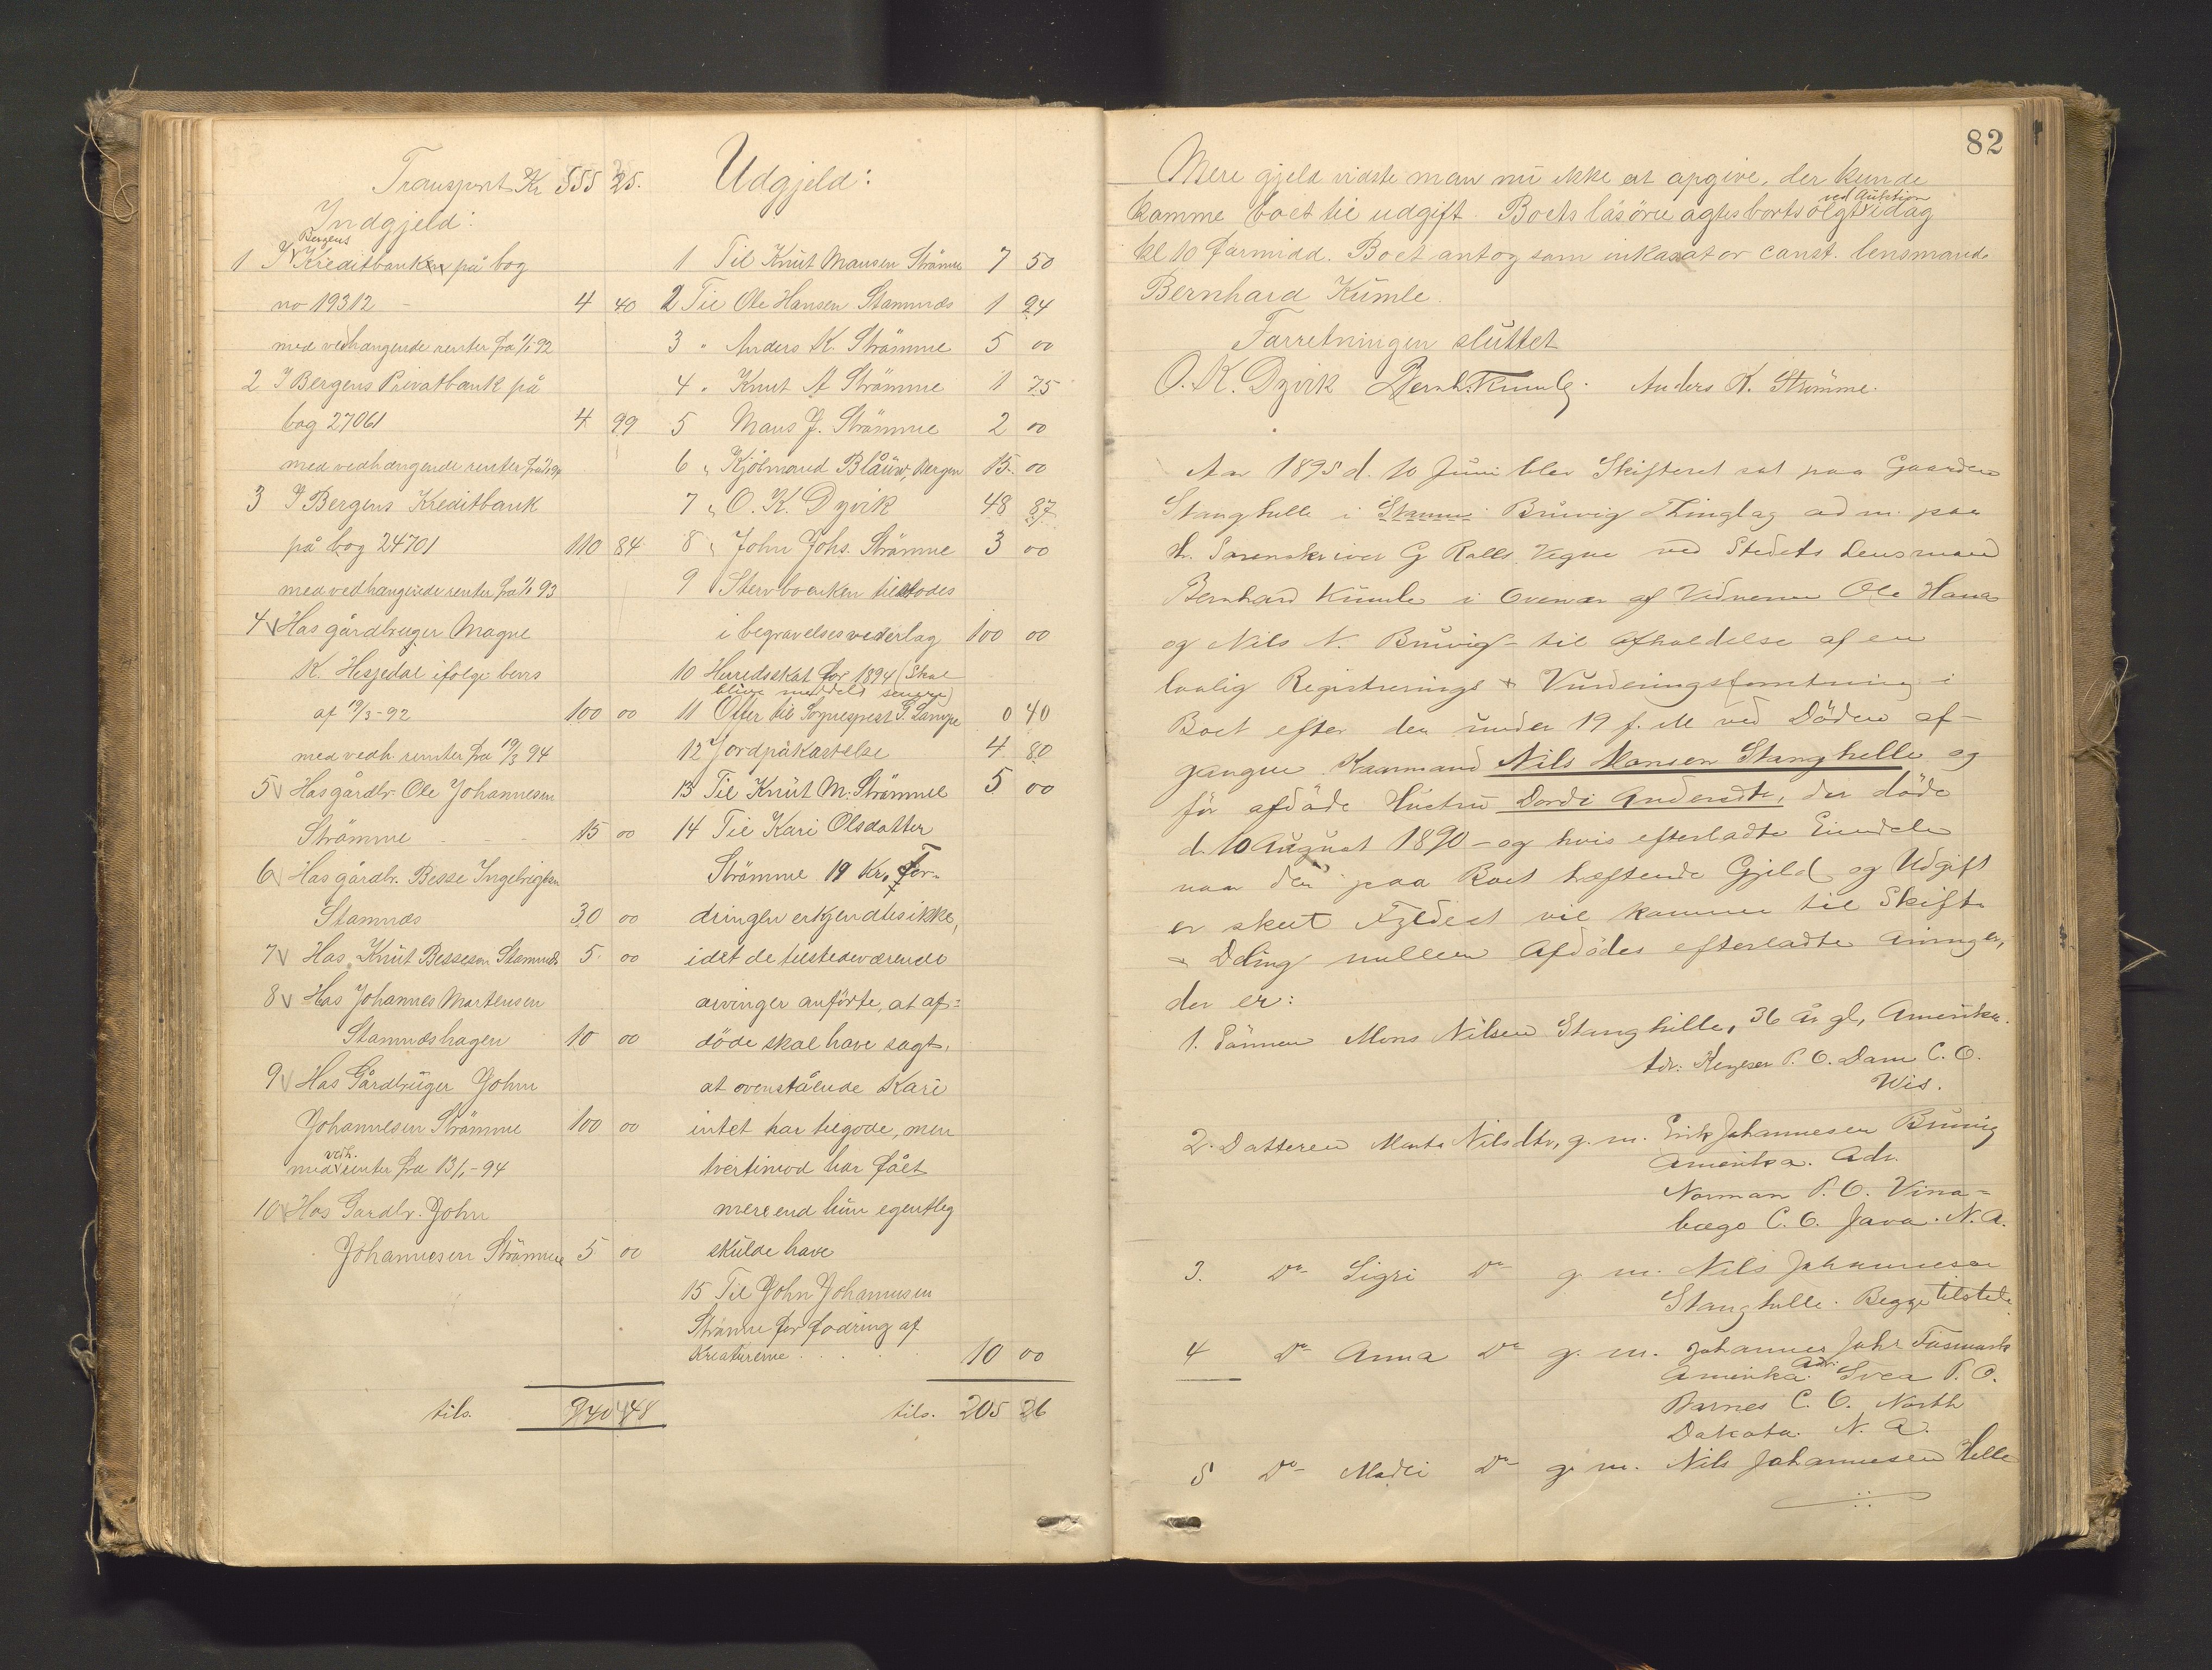 Transport Kr 555 25.
Indgjeld:
1 I Bergens Kreditbank på bog
no 19312 - 4 40
med vedhangende renter fra 1/1 92
2 I Bergens Privatbank på
bog 27061 4 99
med vedhangende renter fra
3 I Bergens Kreditbank
på bog 24701 110 84
med vedhangende renter fra 1/1 93
4 Hos gårdbruger Magne
K. Hesjedal ifølge bevis
af 19/3-92 100 00
med vedh. renter fra 19/3 94
5 Hos gårdbr. Ole Johannesen
Strömme - - 15 00
6 Hos gårdbr. Besse Ingebrigtsen
Stamnæs 30 00
7 Hos Knut Bessesen Stamnæs 5 00
8 Hos Johannes Martensen
Stamnæshagen 10 00
9 Hos Gårdbrüger John
Johannesen Strömme 100 00
med vedh. renter fra 13/1-94
10 Hos Gardbr. John
Johannesen Strömme 5 00
tils. 940 48
Udgjeld:
1 Til Knüt Mansen Strömme 7 50
2 Til Ole Hansen Stamnæs 1 94
3 " Anders K. Strömme 5 00
4 " Knut A Strömme 1 75
5 Mans J. Strömme 2 00
6 " Kjöbmand Blåuw, Bergen 15. 00
7 " O. K. Dyvik 48 87
8 " John Johs. Strömme 3 00
9 Stervboenken tilstodes
i begravelsesvederlag 100 00
10 Herredsskat for 1894 (Skal
blive meddelt senere)
11 Offer til Sognepræst G. Lampe 0 40
12 Jordpåkastelse 4 80
13 Til Knüt M. Strömme 5 00
14 Til Kari Olsdatter
Strömme 19 Kr. For-
dringen erkjendtes ikke,
idet de tilstedeværende
arvinger anförte, at af=
døde skal have sagt,
at ovenstående Kari
intet har tilgode, men
tvertimod har fået
mere end hun egentleg
skülde have
15 Til John Johannesen
Strömme for fodring af
Kreaturerne . . . . 10 00
tils. 205 26
82
Mere gjeld vidste man nu ikke at opgive, der kunde
komme boet til udgift. Boets läsöre agtes bortsolgt ved Auktion idag
kl 10 Formidd. Boet antog som inkasator const. lensmand
Bernhard Kümle.
Forretningen sluttet
O. K. Dyvik Bernh. Kumle. Anders K. Strømme.
Aar 1895 d. 10 Juni blev Skifteret sat paa Gaarden
Stanghelle i Brüvig Thinglag adm. paa
Hr. Sorenskriver G Rolls Vegne ved Stedets Lensmand
Bernhard Kümle i Overvær af Vidnerne Ole Hana
og Nils N. Brüvig - til Afholdelse af en
lovlig Registrerings & Vurderingsforretning i
Boet efter den under 19 f. M ved Döden af-
gangne Kaarmand Nils Monsen Stanghelle og
för afdöde Hüstrü Dordi Andersdtr, der döde
d. 10 August 1890 - og hvis efterladte Eiendele
naar den paa Boet hæftende Gjeld og Udgift
er skeet Fyldest vil komme til Skifte
& Deling mellem Afdödes efterladte Arvinger,
der er:
1. Sönnen Mons Nilsen Stanghelle, 36 år gl, Amerika.
Adr: Keyeser P. O. Dane C. O.
Wis.
2. Datteren Marta Nilsdtr, g. m. Erik Johannesen Brüvig
Amerika. Adr.
Norman P. O. Vina=
bæego C. O. Java. N. A.
3. Do Sigri Do g m. Nils Johannesen
Stanghelle. Begge tilstede.
4 Do Anna Do g. m. Johannes Johs Fosmark
Amerika. Adr: Svea P. O.
Barnes C. O. North
Dakota. N. A.
5 Do Madli Do g. m. Nils Johannesen Helle